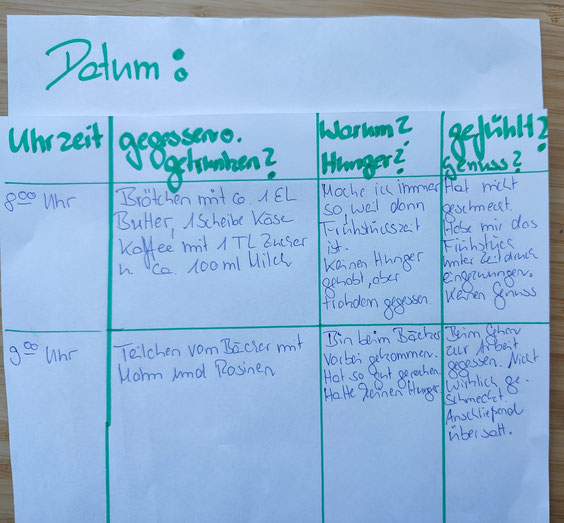 Datum:
Uhrzeit
gegessen o.
getrunken?
Warum?
Hunger?
gefühlt?
Genuss?
8⁰⁰ Uhr
Brötchen mit ca. 1 EL
Butter, 1 Scheibe Käse
Kaffee mit 1 TL Zucker
u. ca. 100 ml Milch
Mache ich immer
so, weil dann
Frühstückszeit
ist.
Keinen Hunger
gehabt, aber
trotzdem gegessen.
Hat nicht
geschmeckt.
Habe mir das
Frühstück
unter Zeitdruck
eingezwungen.
Keinen Genuss
9⁰⁰ Uhr
Teilchen vom Bäcker mit
Mohn und Rosinen
Bin beim Bäcker
vorbei gekommen.
Hat so gut gerochen.
Hatte keinen Hunger.
Beim Gehen
zur Arbeit
gegessen. Nicht
wirklich ge-
schmeckt.
Anschließend
übersatt.